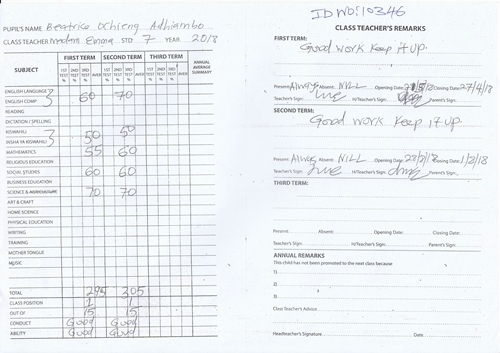 PUPIL'S NAME Beatrice Ochieng Adhiambo
CLASS TEACHER Madam Emma STD 7 YEAR 2018
SUBJECT FIRST TERM SECOND TERM THIRD TERM ANNUAL AVERAGE SUMMARY
1ST TEST % 2ND TEST % 3RD TEST % AVER 1ST TEST % 2ND TEST % 3RD TEST % AVER 1ST TEST % 2ND TEST % 3RD TEST % AVER
ENGLISH LANGUAGE
ENGLISH COMP 60 70
READING
DICTATION / SPELLING
KISWAHILI
INSHA YA KISWAHILI 50 50
MATHEMATICS 55 60
RELIGIOUS EDUCATION
SOCIAL STUDIES 60 60
BUSINESS EDUCATION
SCIENCE & AGRICULTURE 70 70
ART & CRAFT
HOME SCIENCE
PHYSICAL EDUCATION
WRITING
TRAINING
MOTHER TONGUE
MUSIC
TOTAL 295 305
CLASS POSITION 1 1
OUT OF 15 15
CONDUCT Good Good
ABILITY Good Good
ID NO: 10346
CLASS TEACHER'S REMARKS
FIRST TERM:
Good work keep it up.
Present: Always Absent: NILL Opening Date: Closing Date: 27/4/18
Teacher's Sign: H/Teacher's Sign: Parent's Sign:
SECOND TERM:
Good work keep it up.
Present: Always Absent: NILL Opening Date: Closing Date: 1/2/18
Teacher's Sign: H/Teacher's Sign: Parent's Sign:
THIRD TERM:
Present: Absent: Opening Date: Closing Date:
Teacher's Sign: H/Teacher's Sign: Parent's Sign:
ANNUAL REMARKS
This child has not been promoted to the next class because
1)
2)
3)
Class Teacher's Advisor
Headteacher's Signature Date